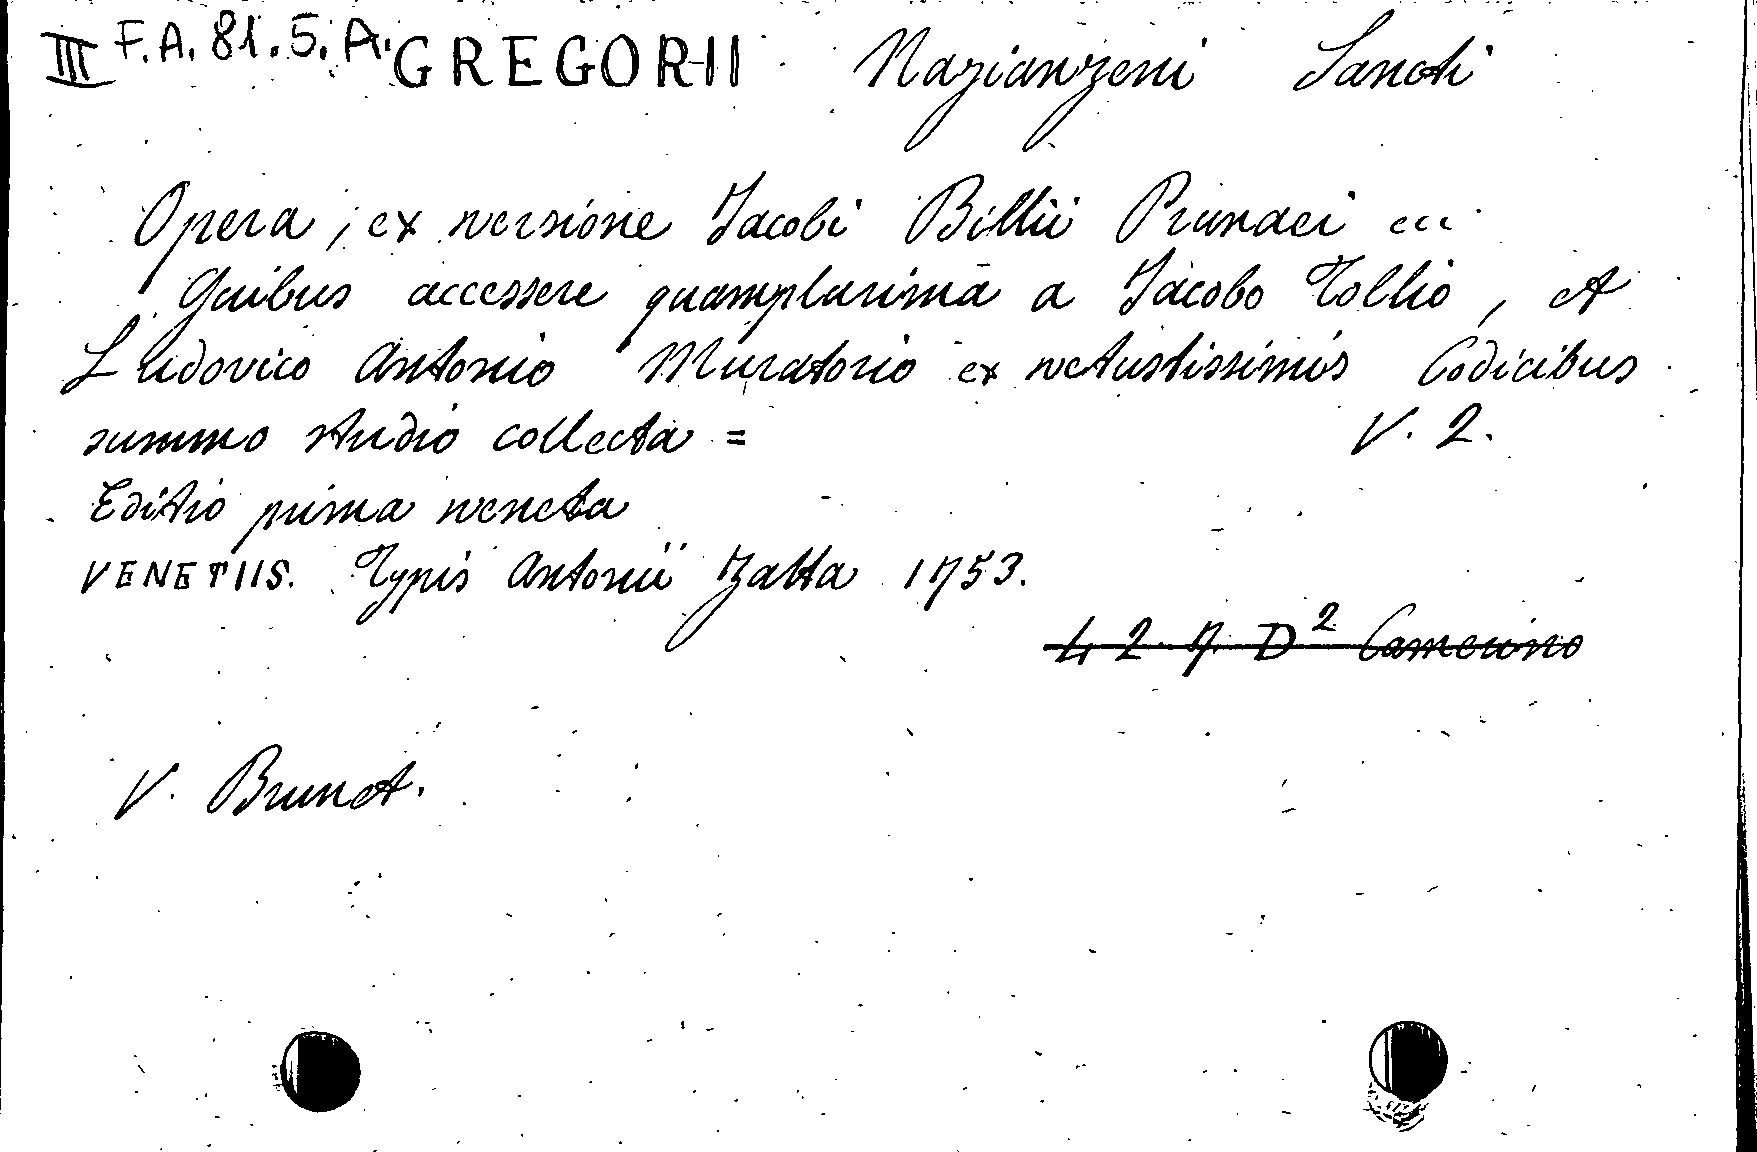 III F.A. 81.5.A. GREGORII Nazianzeni Sancti
Opera, ex versione Jacobi Billii Prunaei ...
Quibus accessere quamplurima a Jacobo Tollio, et
Ludovico Antonio Muratorio ex vetustissimis Codicibus
summo studio collecta = V. 2.
Editio prima veneta
VENETIIS. Typis Antonii Zatta 1753.
4 2. 7. D² Camerino
V. Brunet.